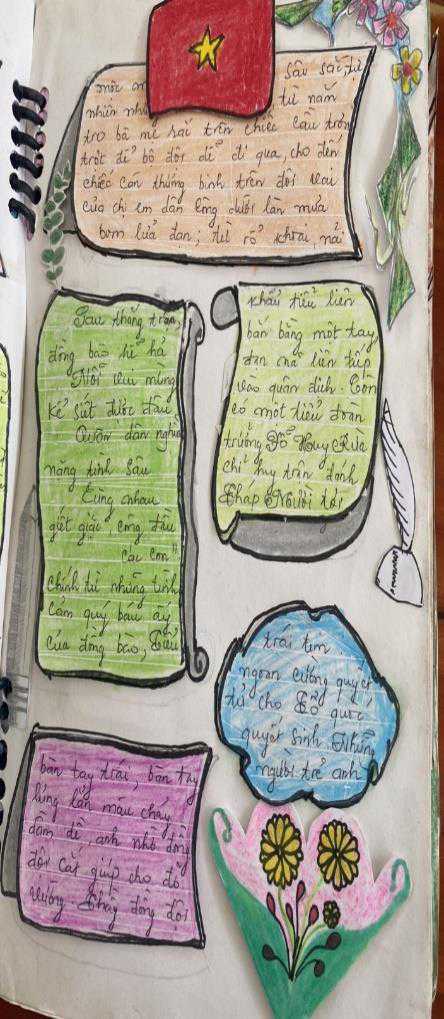 sâu sắc, từ
nhiên từ nắm
tro bà mẹ rải trên chiếc cầu trơn
trợt để bộ đội dễ đi qua, cho đến
chiếc cán thương binh trên đôi vai
của chị em dân công dưới làn mưa
bom lửa đạn; từ rổ khoai, nải
Sau thắng trận,
đồng bào hể hả
Nỗi vui mừng
kể sút được đâu
Quân dân nghĩa
nặng tình sâu
Cùng nhau
giết giặc, cùng đầu
Các con"
chính từ những tình
cảm quý báu ấy
của đồng bào, Tiểu
khẩu tiểu liên
bắn bằng một tay
đạn nã liên tiếp
vào quân địch. Còn
có một tiểu đoàn
trưởng Võ Huy Rừa
chỉ huy trận đánh
Tháp Mười tới
trái tim
ngoan cường quyết
tử cho Tổ quốc
quyết sinh Những
người trẻ anh
bàn tay trái, bàn tay
lủng lẳn máu chảy
dầm dề, anh nhờ đồng
đội cắt giúp cho đỡ
vướng. Thấy đồng đội